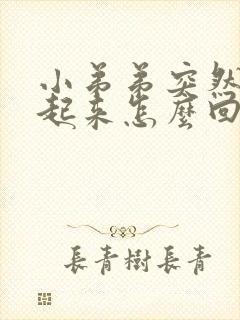 小弟弟突然
起来怎麼回
長青樹長青